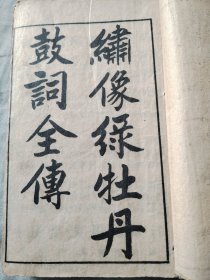 繡像綠牡丹
鼓詞全傳